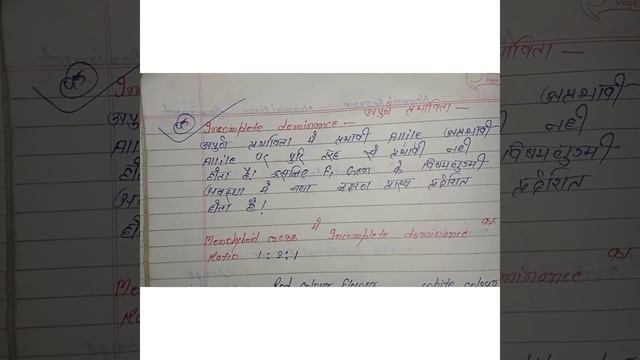 अपुर्ण प्रभाविता —
Incomplete dominance —
अपुर्ण प्रभाविता में प्रभावी Allile अप्रभावी
Allile पर पुरि तरह से प्रभावी नही
होता है। इसलिए F1 के विषमयुग्मी
अवस्था में नया लक्षण प्रदर्शित
होता है!
Monohybrid cross में Incomplete dominance का
Ratio 1:2:1
Red colour flower white colour